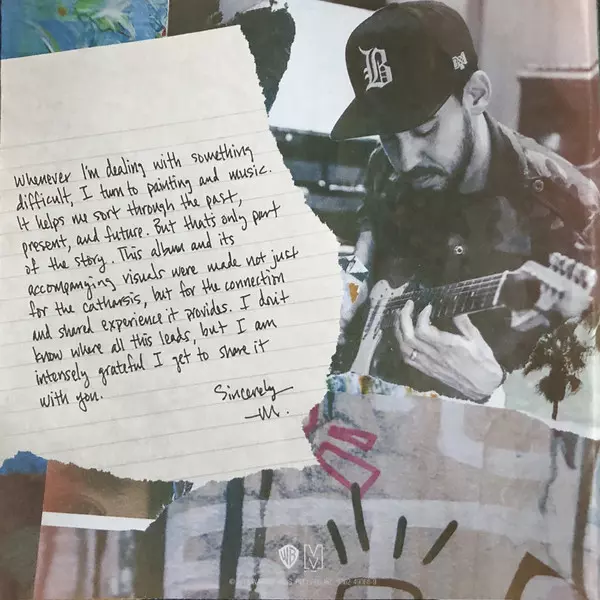 Whenever I'm dealing with something
difficult, I turn to painting and music.
It helps me sort through the past,
present, and future. But that's only part
of the story. This album and its
accompanying visuals were made not just
for the catharsis, but for the connection
and shared experience it provides. I don't
know where all this leads, but I am
intensely grateful I get to share it
with you.
Sincerely
—M.
B
WB M